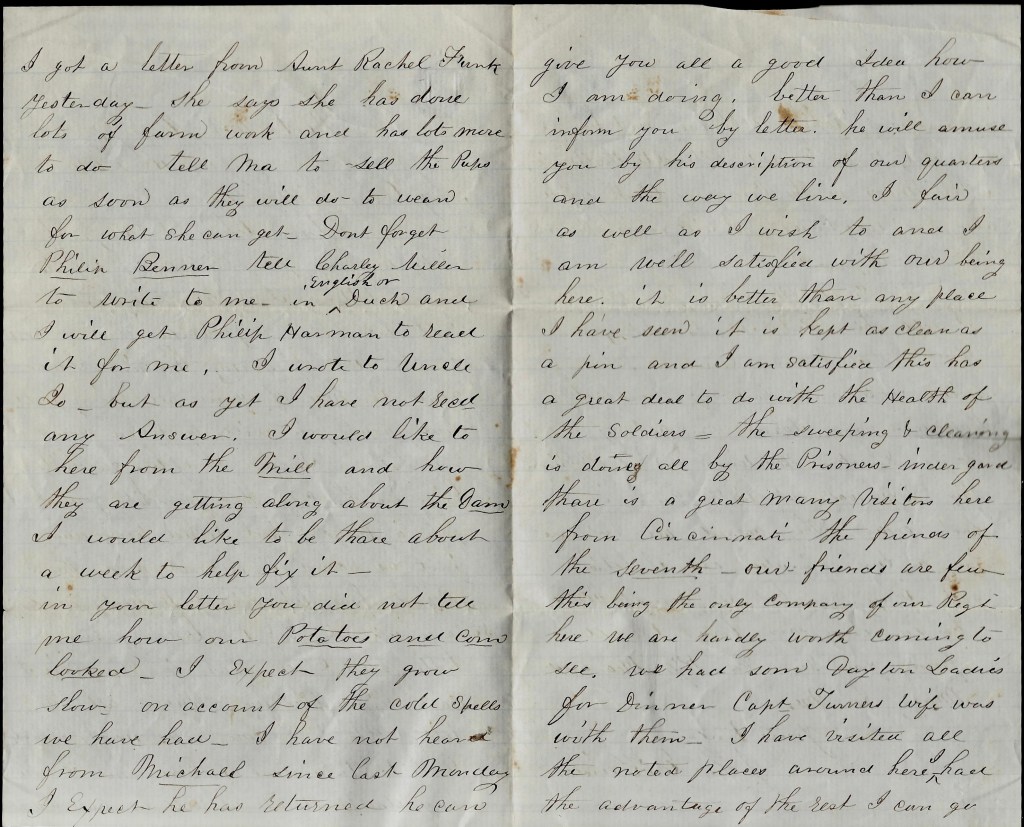 I got a letter from Aunt Rachel Funk
yesterday - she says she has done
lots of farm work and has lots more
to do - tell Ma to sell the Pups
as soon as they will do - to wean
for what she can get - Dont forget
Philip Benner tell Charley Miller
to write to me - in ^English or Duch and
I will get Philip Harman to read
it for me. I wrote to Uncle
Jo - but as yet I have not recd
any Answer. I would like to
here from the Mill and how
they are getting along about the Dam
I would like to be thare about
a week to help fix it -
in your letter you did not tell
me how our Potatoes and corn
looked - I Expect they grow
slow - on account of the cold spells
we have had - I have not heard
from Michall since last Monday
I Expect he has returned he can
give you all a good Idea how
I am doing. better than I can
inform you by letter. he will amuse
you by his description of our quarters
and the way we live. I fair
as well as I wish to and I
am well satisfied with our being
here. it is better than any place
I have seen it is kept as clean as
a pin and I am satisfied this has
a great deal to do with the Health of
the Soldiers = the sweeping & cleaning
is doing all by the Prisoners - inder gard
thare is a great many Visitors here
from Cincinnati the friends of
the seventh - our friends are few
this being the only company of our Regt
here we are hardly worth coming to
see. we had som Dayton Ladies
for Dinner Capt Turners wife was
with them - I have visited all
the noted places around here ^I had
the advantage of the rest I can go